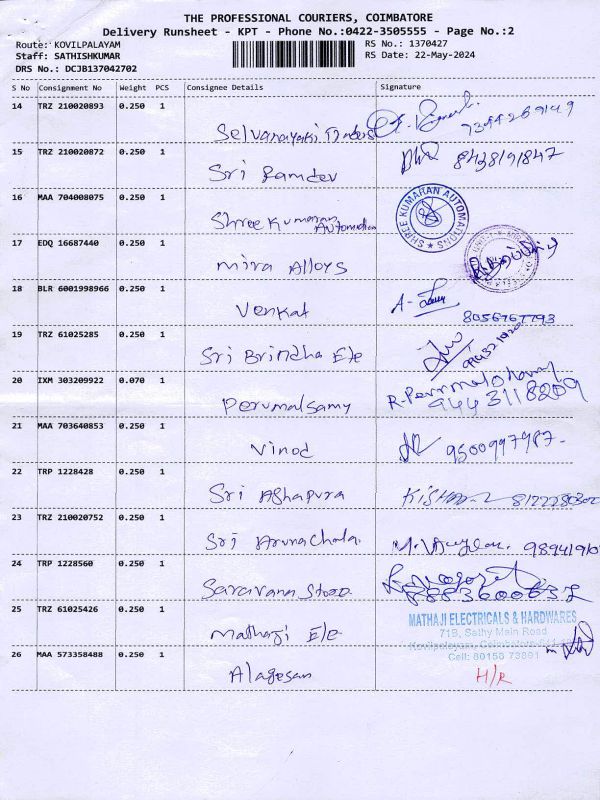 THE PROFESSIONAL COURIERS, COIMBATORE
Delivery Runsheet - KPT - Phone No.:0422-3505555 - Page No.:2
Route: KOVILPALAYAM RS No.: 1370427
Staff: SATHISHKUMAR RS Date: 22-May-2024
DRS No.: DCJB137042702
S No Consignment No Weight PCS Consignee Details Signature
14 TRZ 210020893 0.250 1
Selvanayaki Traders
15 TRZ 210020872 0.250 1 8438191847
Sri Ramdev
16 MAA 704008075 0.250 1 SHREE KUMARAN AUTOMATIONS
Shree Kumaran Automation
17 EDQ 16687440 0.250 1
Mira Alloys
18 BLR 6001998966 0.250 1
Venkat 8056767793
19 TRZ 61025285 0.250 1
Sri Brindha Ele
20 IXM 303209922 0.070 1
Perumalsamy 9443118209
21 MAA 703640853 0.250 1
Vinod 9500997987
22 TRP 1228428 0.250 1
Sri Ashapura
23 TRZ 210020752 0.250 1
Sri Arunachala
24 TRP 1228560 0.250 1
Saravana
25 TRZ 61025426 0.250 1 MATHAJI ELECTRICALS & HARDWARES
Mathaji Ele 71B, Sathy Main Road
Kovilpalayam,
Cell: 80156 73801
26 MAA 573358488 0.250 1
Alagesan H/R